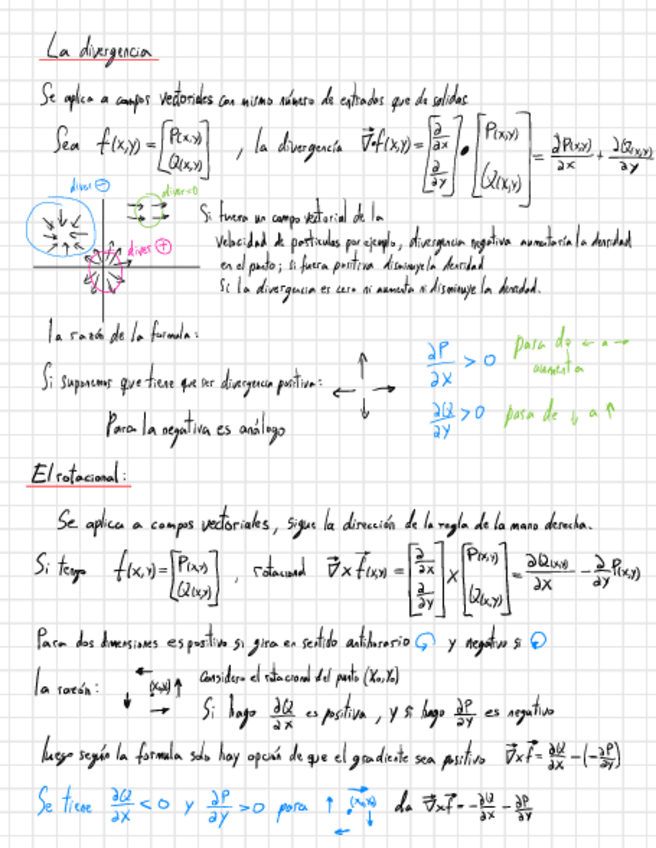 La divergencia
Se aplica a campos vectoriales con mismo número de entradas que de salidas
Sea f(x,y) = [P(x,y) Q(x,y)] , la divergencia ∇⃗·f(x,y) = [∂/∂x ∂/∂y] • [P(x,y) Q(x,y)] = ∂P(x,y)/∂x + ∂Q(x,y)/∂y
diver ⊖
diver=0
diver ⊕
Si fuera un campo vectorial de la
velocidad de partículas por ejemplo, divergencia negativa aumentaría la densidad
en el punto; si fuera positiva disminuye la densidad
Si la divergencia es cero ni aumenta ni disminuye la densidad.
la razón de la formula:
Si suponemos que tiene que ser divergencia positiva:
∂P/∂x > 0 pasa de ← a →
aumenta
∂Q/∂y > 0 pasa de ↓ a ↑
Para la negativa es análogo
El rotacional:
Se aplica a campos vectoriales, sigue la dirección de la regla de la mano derecha.
Si tengo f(x,y) = [P(x,y) Q(x,y)] , rotacional ∇⃗ x f⃗(x,y) = [∂/∂x ∂/∂y] x [P(x,y) Q(x,y)] = ∂Q(x,y)/∂x - ∂/∂y P(x,y)
Para dos dimensiones es positivo si gira en sentido antihorario ↺ y negativo si ↻
la razón: ← ↓ (x₀,y₀) ↑ → Considero el rotacional del punto (x₀,y₀)
Si hago ∂Q/∂x es positiva, y si hago ∂P/∂y es negativo
luego según la formula solo hay opción de que el gradiente sea positivo ∇⃗xf⃗ = ∂Q/∂x - (-∂P/∂y)
Se tiene ∂Q/∂x < 0 y ∂P/∂y > 0 para ↑ → (x₀,y₀) ↓ ← da ∇⃗xf⃗ = -∂Q/∂x - ∂P/∂y